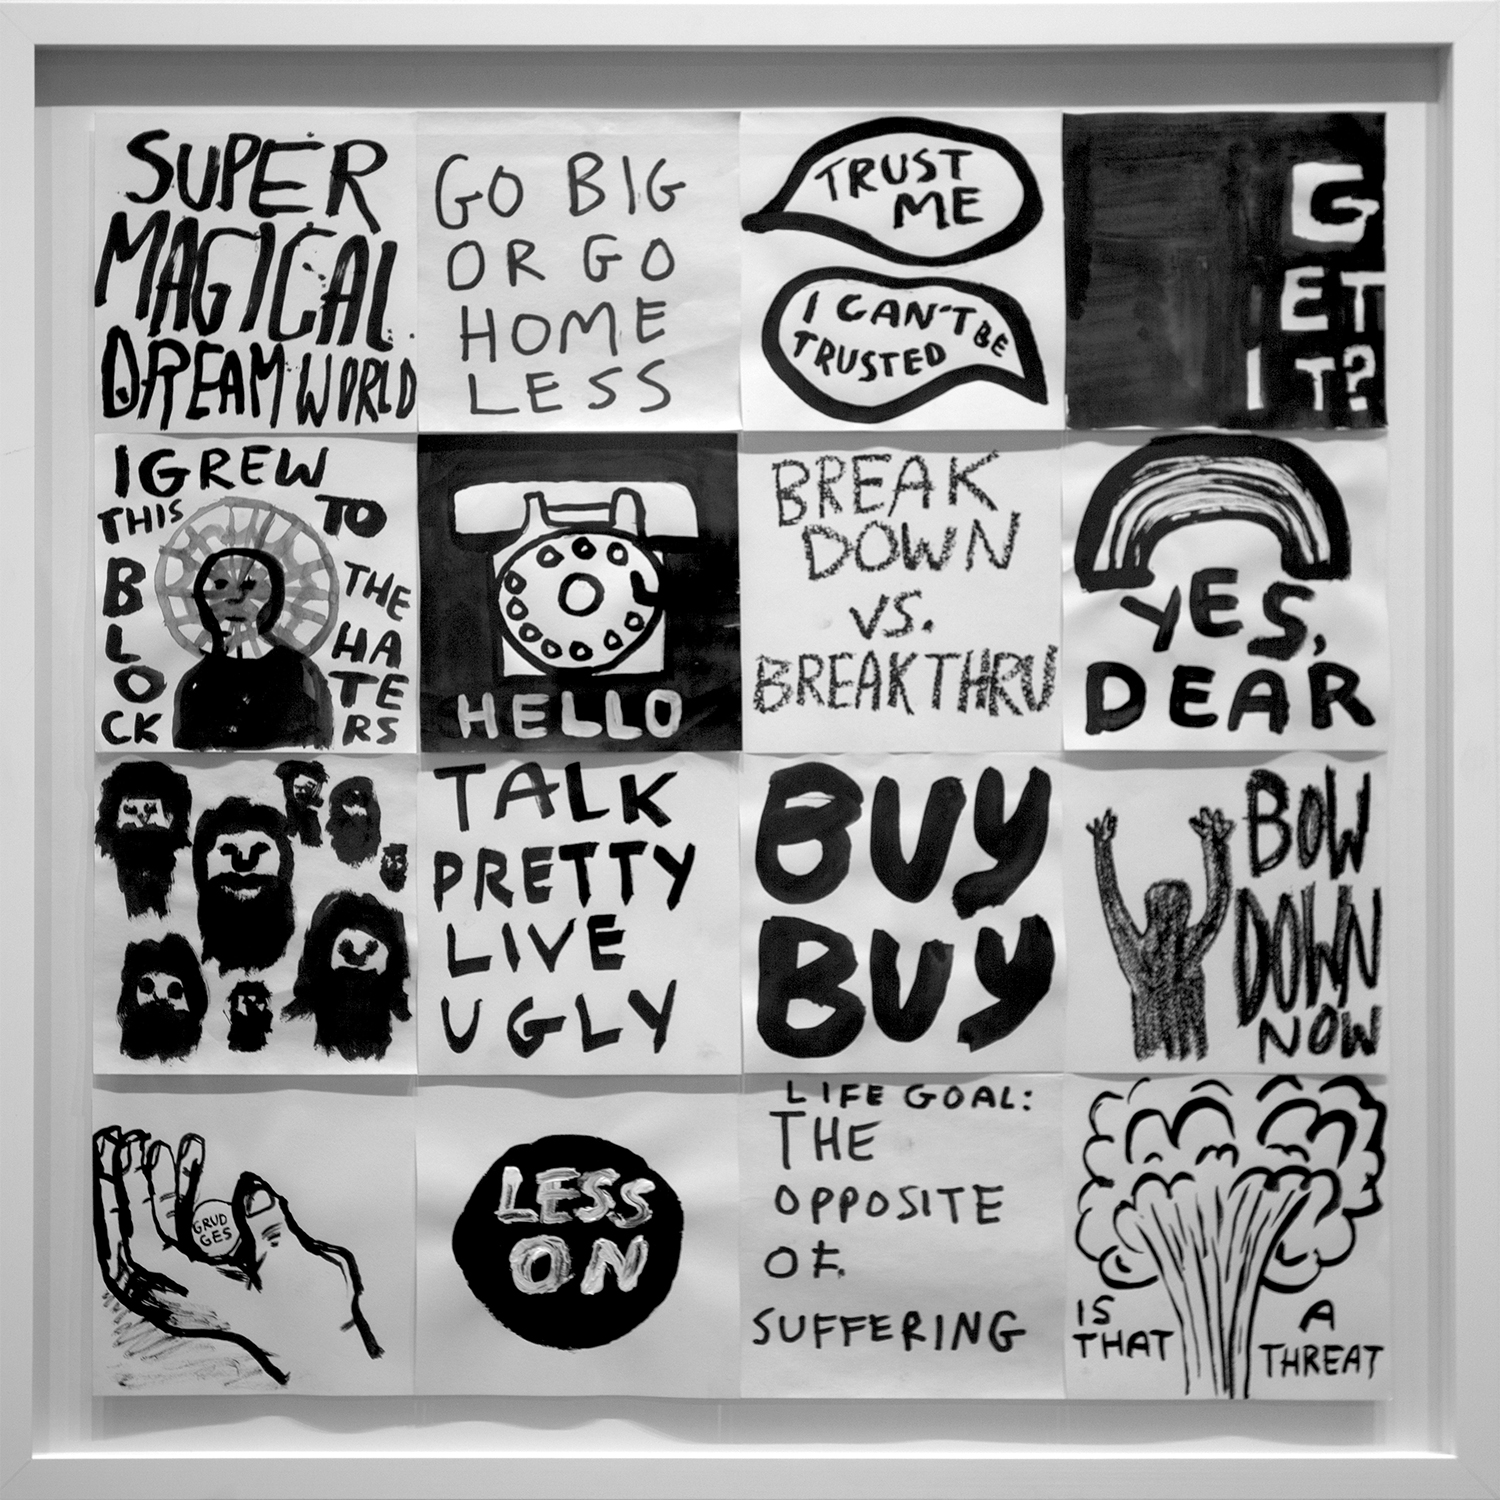 SUPER
MAGICAL
DREAMWORLD
GO BIG
OR GO
HOME
LESS
TRUST
ME
I CAN'T BE
TRUSTED
G
ET
IT?
I GREW
THIS TO
B
L
O
CK
THE
HA
TE
RS
HELLO
BREAK
DOWN
VS.
BREAKTHRU
YES,
DEAR
TALK
PRETTY
LIVE
UGLY
BUY
BUY
BOW
DOWN
NOW
GRUD
GES
LESS
ON
LIFE GOAL:
THE
OPPOSITE
OF
SUFFERING
IS
THAT
A
THREAT